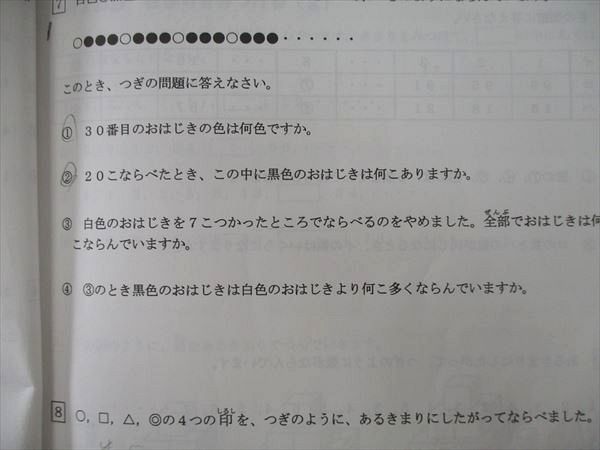 7
○●●●○●●●○●●●○●●●・・・・・・
このとき、つぎの問題に答えなさい。
① 30番目のおはじきの色は何色ですか。
② 20こならべたとき、この中に黒色のおはじきは何こありますか。
③ 白色のおはじきを7こつかったところでならべるのをやめました。全部でおはじきは何
こならんでいますか。
④ ③のとき黒色のおはじきは白色のおはじきより何こ多くならんでいますか。
8 ○，□，△，◎の4つの印を、つぎのように、あるきまりにしたがってならべました。